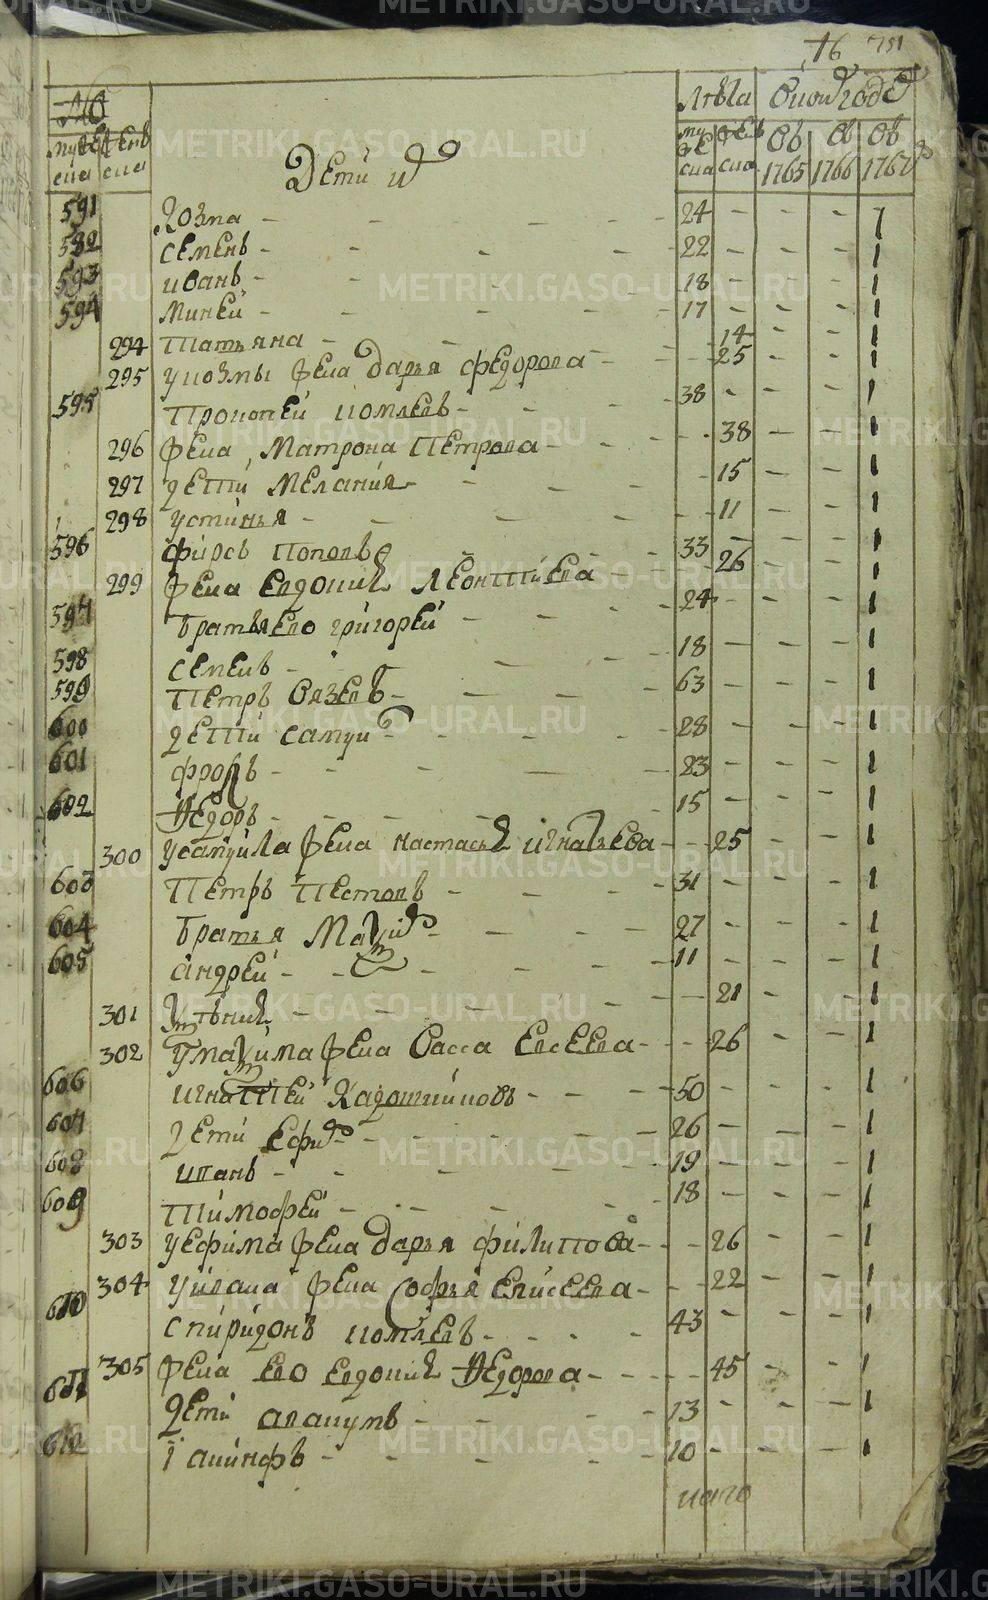 16 751
№
Лета
мужеска женска
Дети их
муска женска
1765 1766 1767
591 Козма - - - - 24 - - - 1
592 Семенъ - - - - 22 - - - 1
593 иванъ - - - - 18 - - - 1
594 Миней - - - - 17 - - - 1
294 Татьяна - - - 14 - - 1
295 у козмы жена дарья федорова - - - 25 - - 1
595 Прокопей - - - 38 - - - 1
296 жена Матрона Петрова - - - 38 - - 1
297 дети Мелания - - - 15 - - 1
298 устинья - - - 11 - - 1
596 фирсъ Поповъ - - - 33 - - - 1
299 жена Евдокия Леонтиева - - 26 - - 1
597 братья ево григорей - - - 24 - - - 1
598 семенъ - - - 18 - - - 1
599 Петръ - - - 63 - - - 1
600 дети самуи - - - 28 - - - 1
601 фролъ - - - - 23 - - - 1
602 Федоръ - - - - 15 - - - 1
300 у самуила жена настасья игнатьева - - 25 - - 1
603 Петръ Пестовъ - - - 31 - - - 1
604 братья Макси - - - 27 - - - 1
605 андрей - - - - 11 - - - 1
301 - - - 21 - - 1
302 у максима жена Васса Евсеева - - - 26 - - 1
606 игнатей - - - 50 - - - 1
607 дети ефи - - - 26 - - - 1
608 иванъ - - - - 19 - - - 1
609 Тимофей - - - - 18 - - - 1
303 у ефима жена дарья филипова - - - 26 - - 1
304 у ивана жена софья елисеева - - - 22 - - 1
610 спиридонъ - - - - 43 - - - 1
305 жена ево евдокия Федорова - - - 45 - - 1
611 дети авакумъ - - - - 13 - - - 1
612 иакинфъ - - - - 10 - - - 1
METRIKI.GASO-URAL.RU